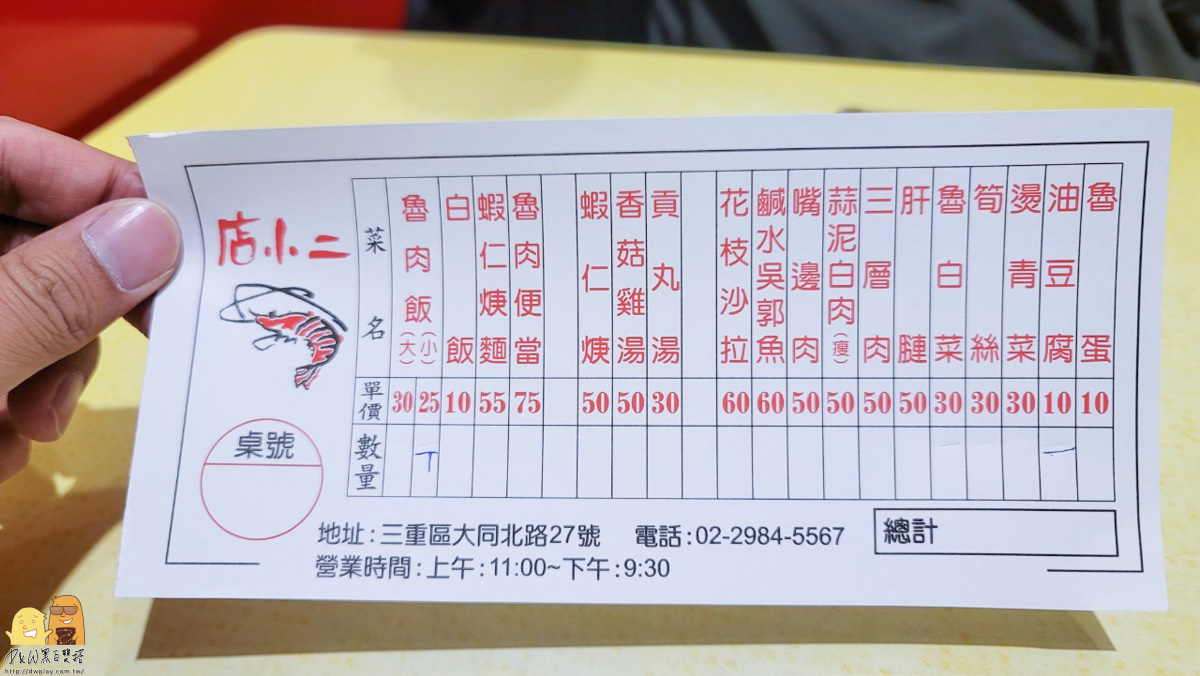 店小二
桌號
菜名
單價
數量
魯肉飯(大) 30
(小) 25
白飯 10
蝦仁焿麵 55
魯肉便當 75
蝦仁焿 50
香菇雞湯 50
貢丸湯 30
花枝沙拉 60
鹹水吳郭魚 60
嘴邊肉 50
蒜泥白肉(瘦) 50
三層肉 50
肝腱 50
魯白菜 30
筍絲 30
燙青菜 30
油豆腐 10
魯蛋 10
地址:三重區大同北路27號 電話:02-2984-5567
營業時間:上午:11:00~下午:9:30
總計
D&W黑白雙搭
http://dwplay.com.tw/